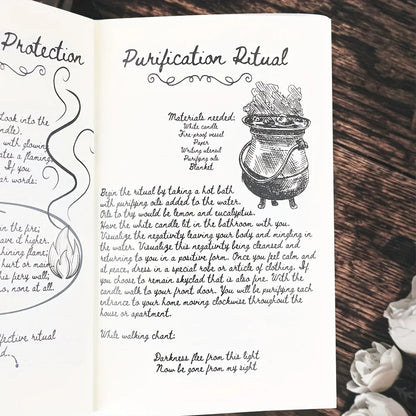 Protection
Look into the
candle).
with glowing
ates a flaming
If you
ar words:
in the fire;
ave it higher.
shining flame;
hurt or maim.
his fiery wall;
o, none at all.
ffective ritual
d.
Purification Ritual
Materials needed:
White candle
Fire-proof vessel
Paper
Writing utensil
Purifying oils
Blanket
Begin the ritual by taking a hot bath
with purifying oils added to the water.
Oils to try would be lemon and eucalyptus.
Have the white candle lit in the bathroom with you.
Visualize the negativity leaving your body and mingling in
the water. Visualize this negativity being cleansed and
returning to you in a positive form. Once you feel calm and
at peace, dress in a special robe or article of clothing. If
you choose to remain skyclad that is also fine. With the
candle walk to your front door. You will be purifying each
entrance to your home moving clockwise throughout the
house or apartment.
While walking chant:
Darkness flee from this light
Now be gone from my sight